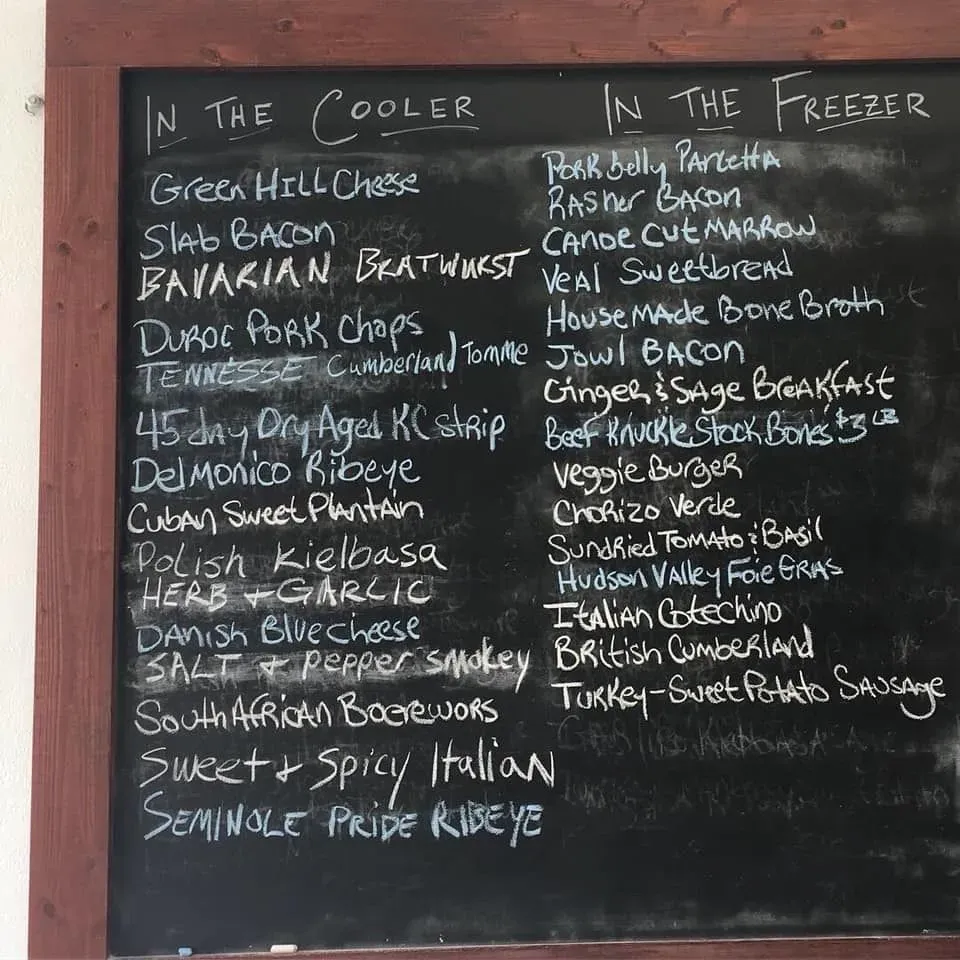 IN THE COOLER
Green HILL Cheese
Slab BACON
BAVARIAN BRATWURST
Duroc Pork Chops
TENNESSE Cumberland Tomme
45 day Dry Aged KC strip
Delmonico Ribeye
Cuban Sweet Plantain
Polish Kielbasa
HERB + GARLIC
Danish Blue cheese
SALT + Pepper smokey
South African Boerewors
Sweet + Spicy Italian
SEMINOLE PRIDE RIBEYE
IN THE FREEZER
Pork Belly Pancetta
Rasher Bacon
Canoe Cut Marrow
Veal Sweetbread
House Made Bone Broth
Jowl BACON
Ginger & Sage Breakfast
Beef Knuckle Stock Bones $3 LB
Veggie Burger
Chorizo Verde
Sundried Tomato & Basil
Hudson Valley Foie Gras
Italian Cotechino
British Cumberland
Turkey-Sweet Potato Sausage